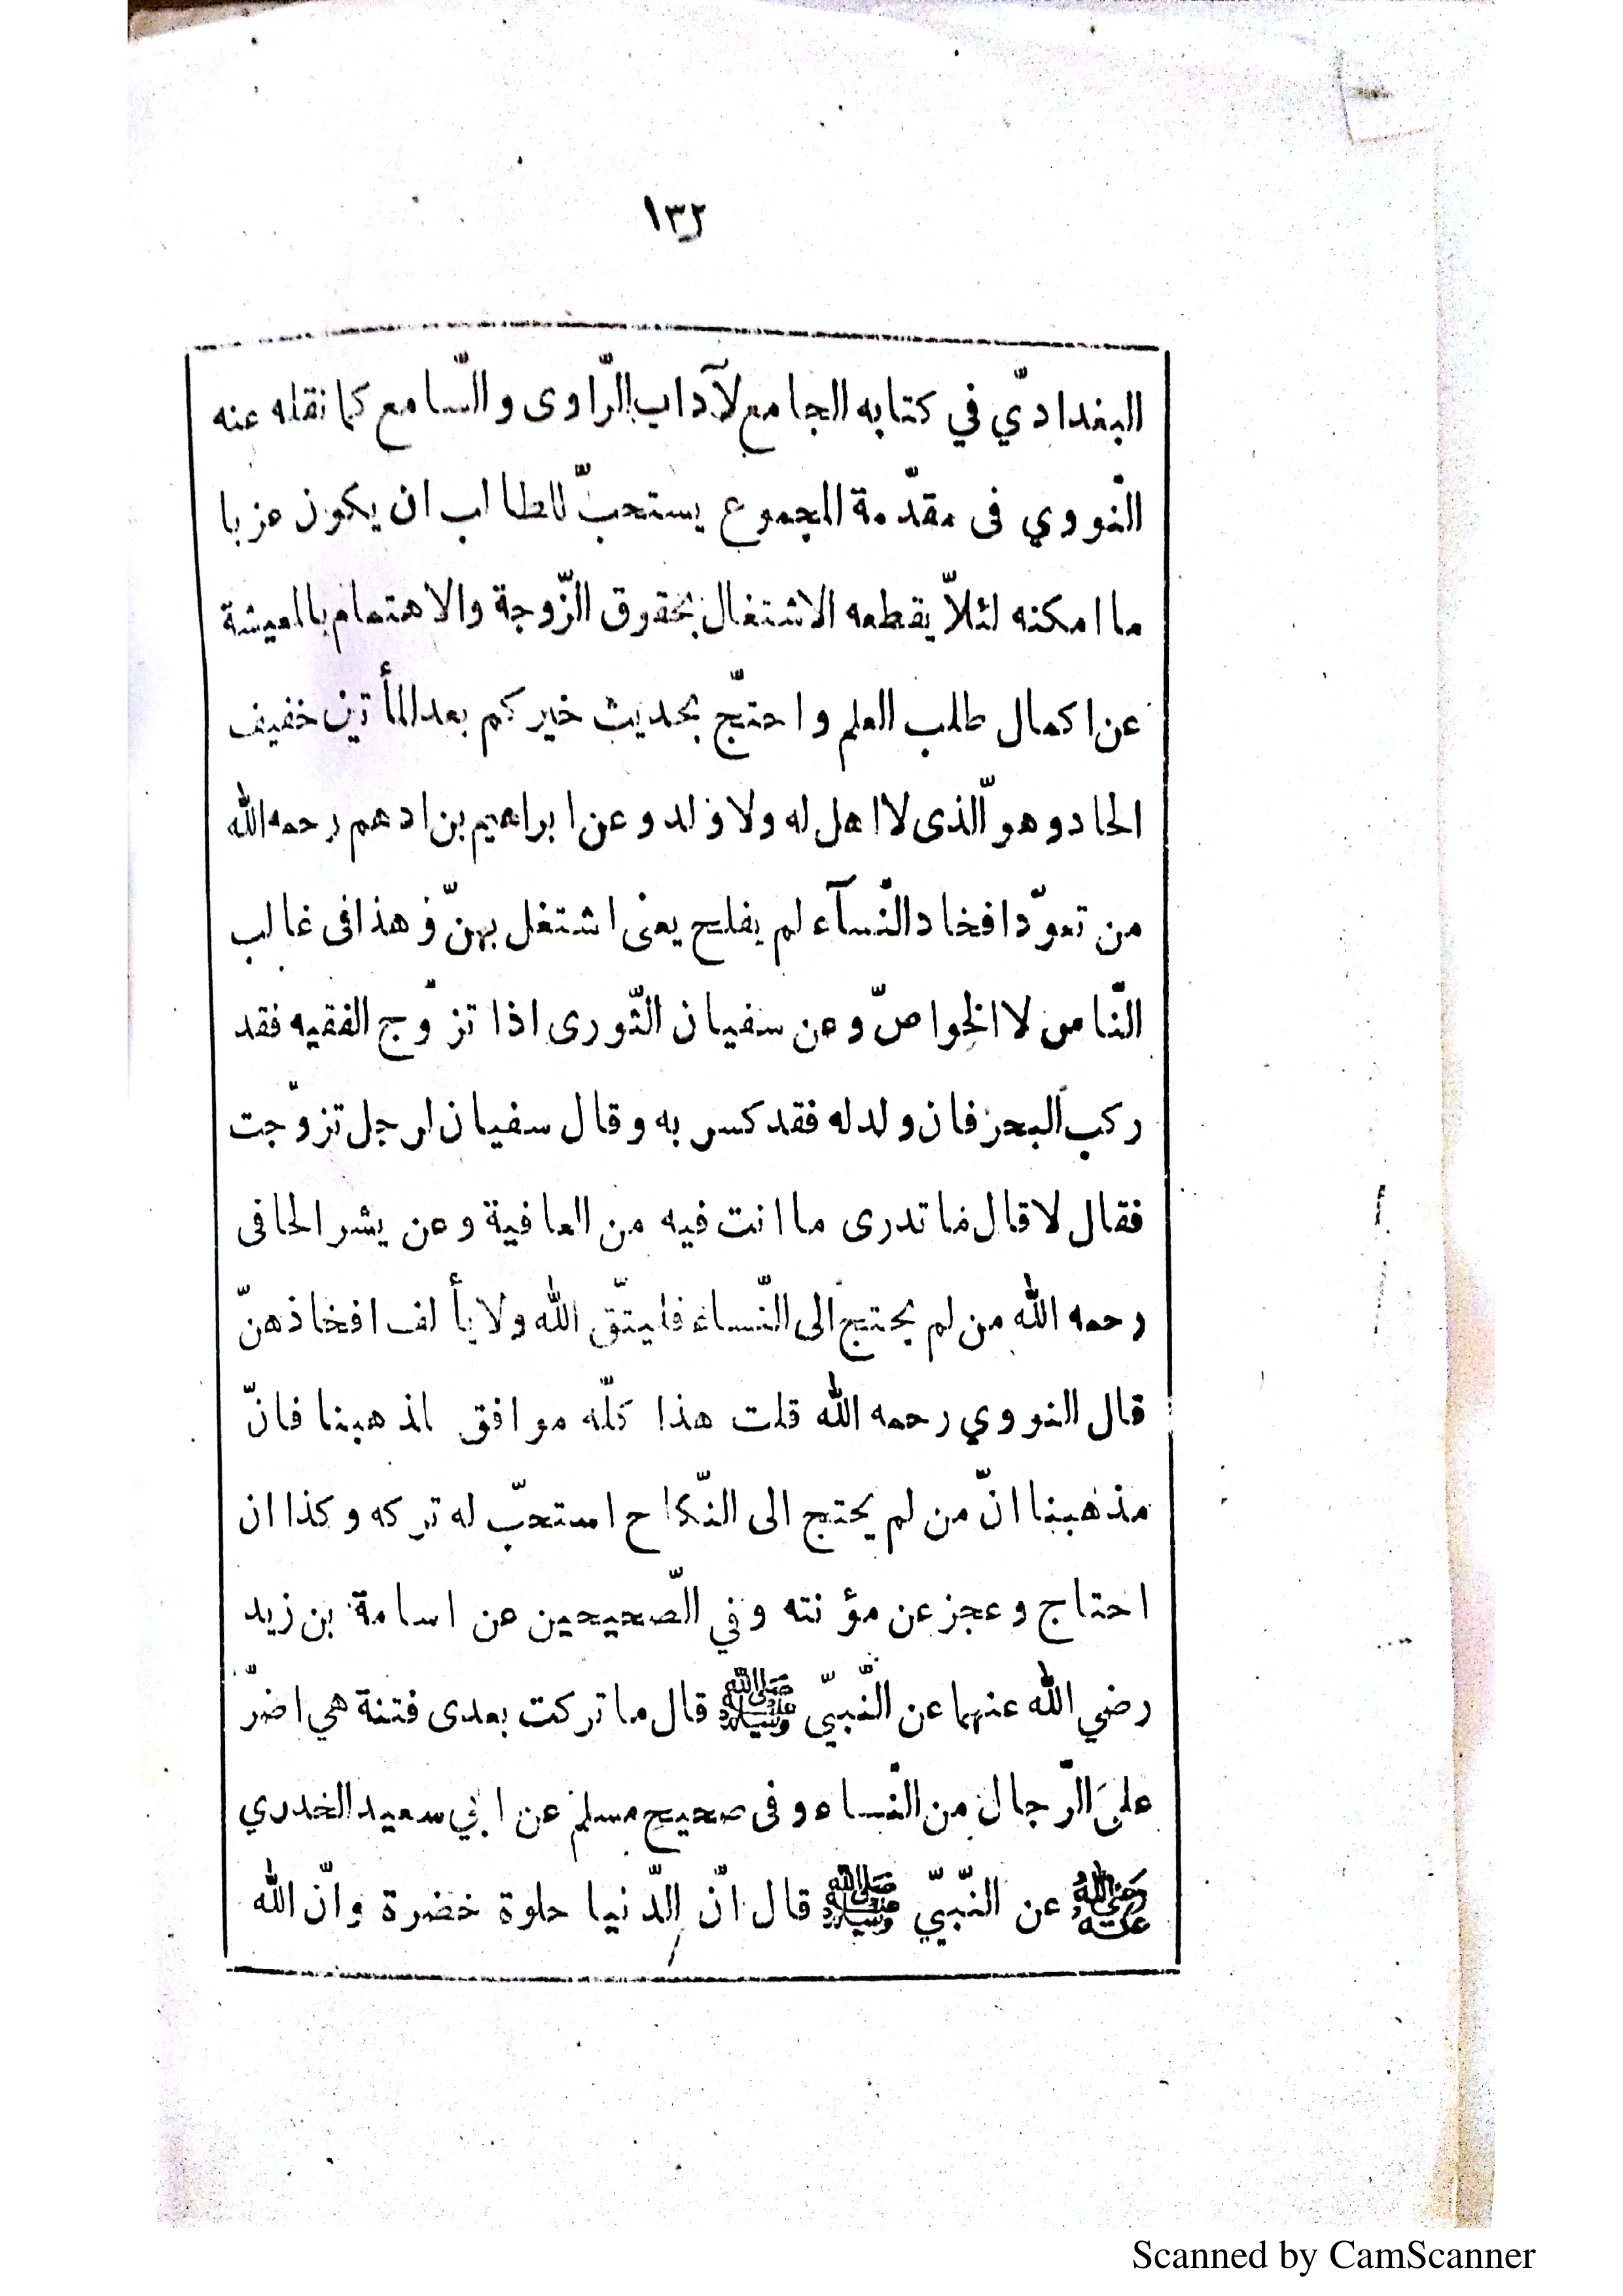 ١٣٢
البغدادّي في كتابه الجامع لآداب الرّاوى والسّامع كما نقله عنه
النّووي فى مقدّمة المجموع يستحبّ للطالب ان يكون عزبا
ما امكنه لئلاّ يقطعه الاشتغال بحقوق الزّوجة والاهتمام بالمعيشة
عن اكمال طلب العلم واحتجّ بحديث خيركم بعد المأتين خفيف
الحاد وهو الّذى لا اهل له ولا ولد وعن ابراهيم بن ادهم رحمه الله
من تعوّد افخاد النّسآء لم يفلح يعنى اشتغل بهنّ وهذا فى غالب
النّاس لا الخواصّ وعن سفيان الثّورى اذا تزوّج الفقيه فقد
ركب البحر فان ولد له فقد كسر به وقال سفيان لرجل تزوّجت
فقال لا قال ما تدرى ما انت فيه من العافية وعن بشر الحافى
رحمه الله من لم يحتج الى النّساء فليتّق الله ولا يألف افخاذهنّ
قال النووي رحمه الله قلت هذا كلّه موافق لمذهبنا فانّ
مذهبنا انّ من لم يحتج الى النّكاح استحبّ له تركه وكذا ان
احتاج وعجز عن مؤنته وفي الصّحيحين عن اسامة بن زيد
رضي الله عنهما عن النّبيّ ﷺ قال ما تركت بعدى فتنة هي اضرّ
على الرّجال من النّساء وفى صحيح مسلم عن ابي سعيد الخدري
رضي الله عنه عن النّبيّ ﷺ قال انّ الدّنيا حلوة خضرة وانّ الله
Scanned by CamScanner